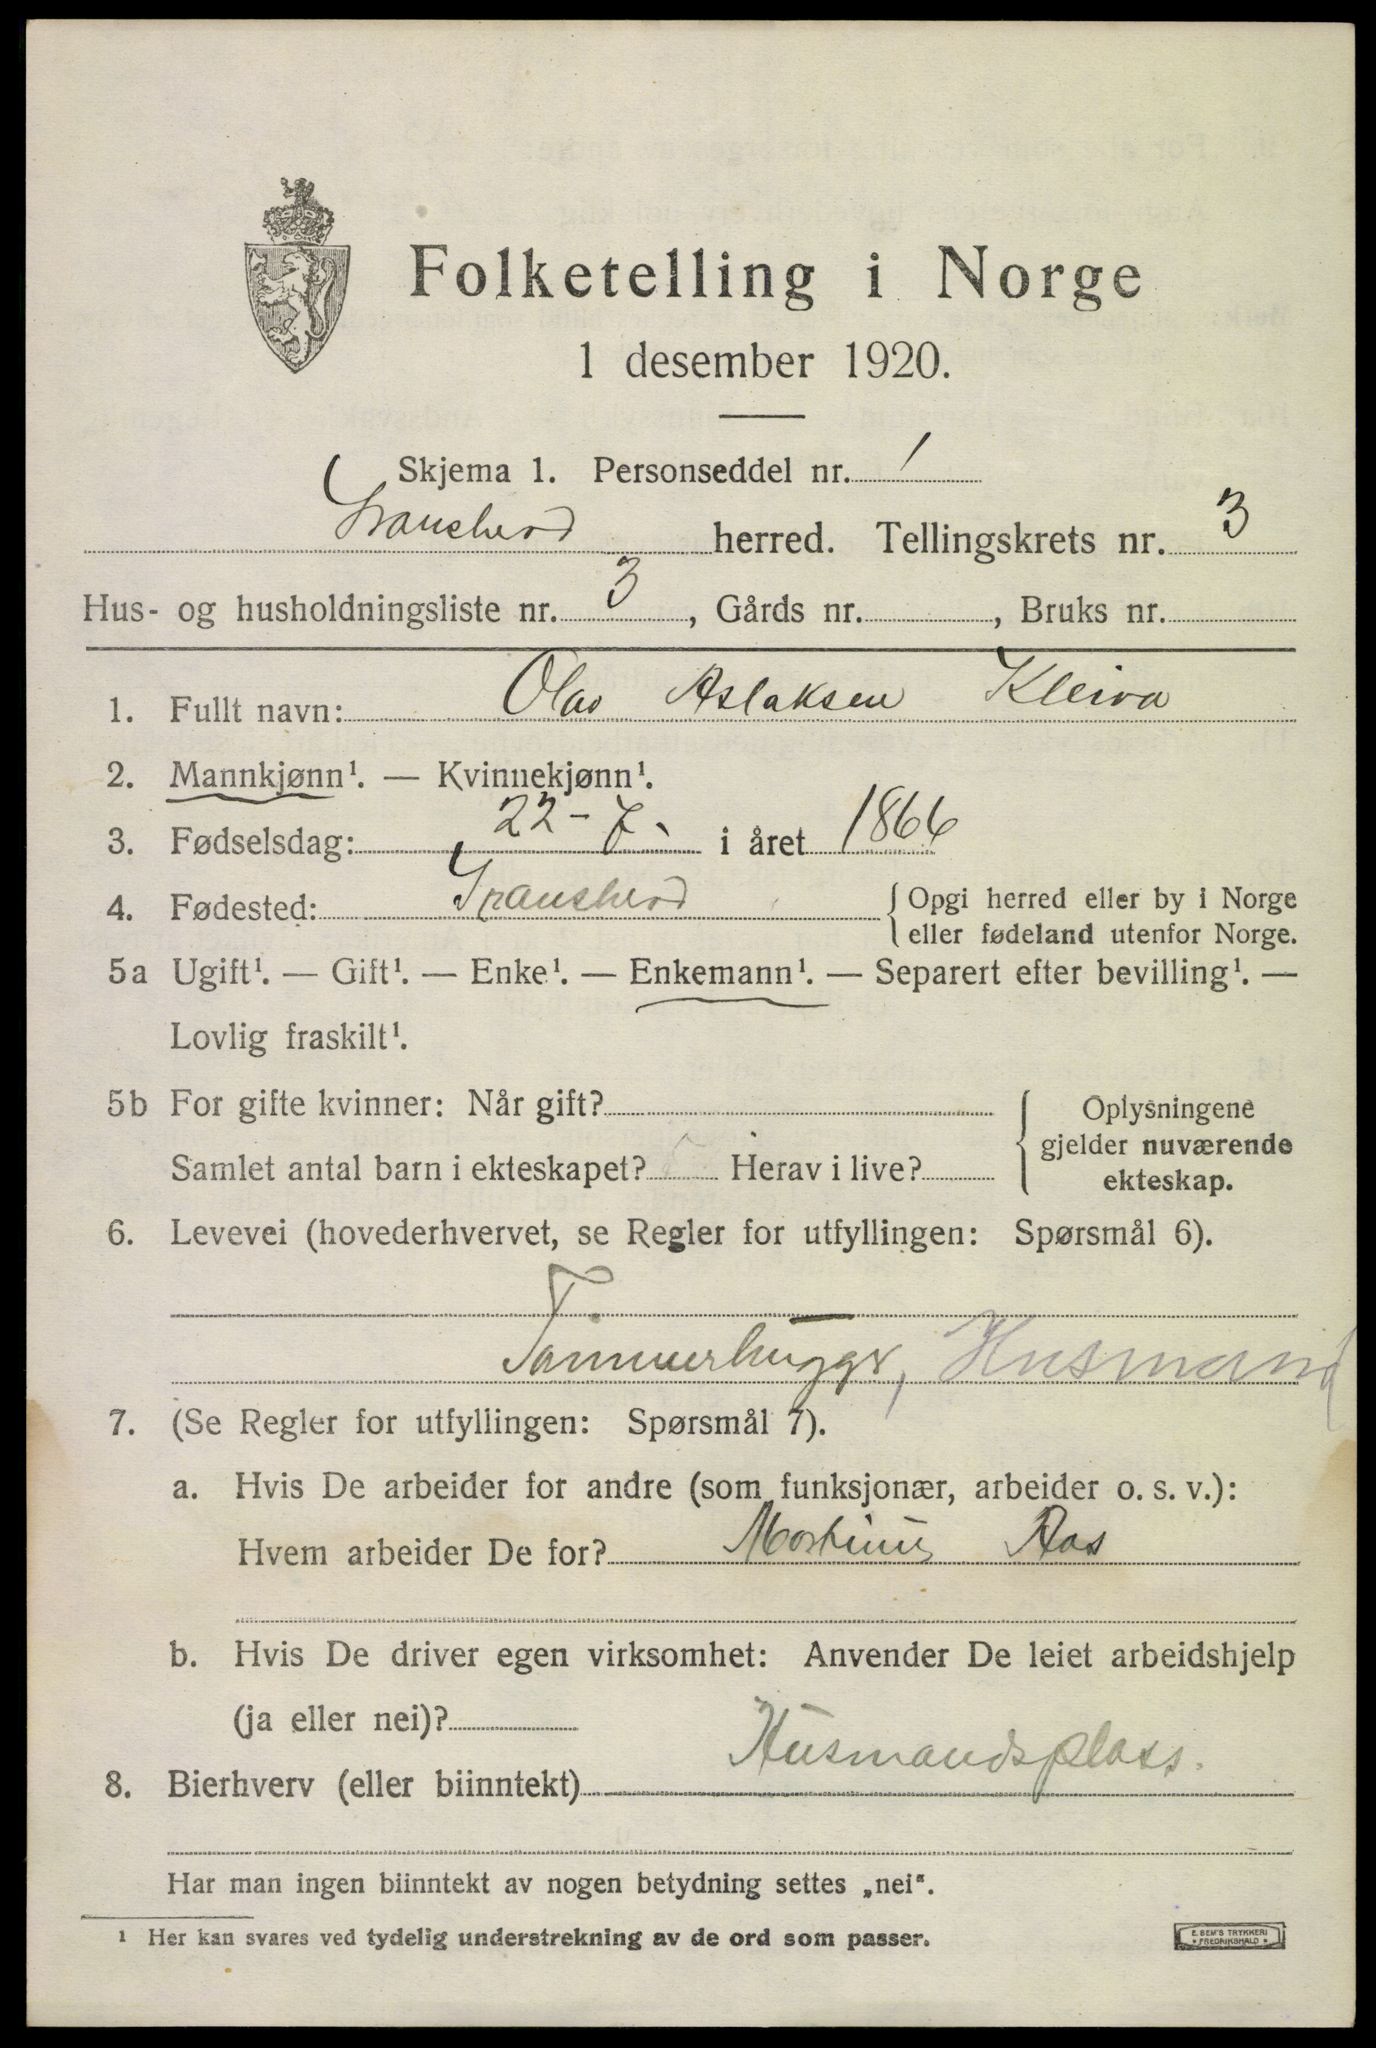 Folketelling i Norge
1 desember 1920.
Skjema 1. Personseddel nr. 1
Gransherd herred. Tellingskrets nr. 3
Hus- og husholdningsliste nr. 3, Gårds nr. , Bruks nr.
1. Fullt navn: Olav Aslaksen Kleiva
2. Mannkjønn¹. — Kvinnekjønn¹.
3. Fødselsdag: 22-7. i året 1866
4. Fødested: Gransherd { Opgi herred eller by i Norge
eller fødeland utenfor Norge.
5a Ugift¹. — Gift¹. — Enke¹. — Enkemann¹. — Separert efter bevilling¹. —
Lovlig fraskilt¹.
5b For gifte kvinner: Når gift?
Samlet antal barn i ekteskapet? Herav i live?
{ Oplysningene
gjelder nuværende
ekteskap.
6. Levevei (hovederhvervet, se Regler for utfyllingen: Spørsmål 6).
Tømmerhugger, Husmand
7. (Se Regler for utfyllingen: Spørsmål 7).
a. Hvis De arbeider for andre (som funksjonær, arbeider o. s. v.):
Hvem arbeider De for? Aas
b. Hvis De driver egen virksomhet: Anvender De leiet arbeidshjelp
(ja eller nei)?
8. Bierhverv (eller biinntekt) Husmandsplass.
Har man ingen biinntekt av nogen betydning settes „nei".
¹ Her kan svares ved tydelig understrekning av de ord som passer.
E. SEM'S TRYKKERI
FREDRIKSHALD